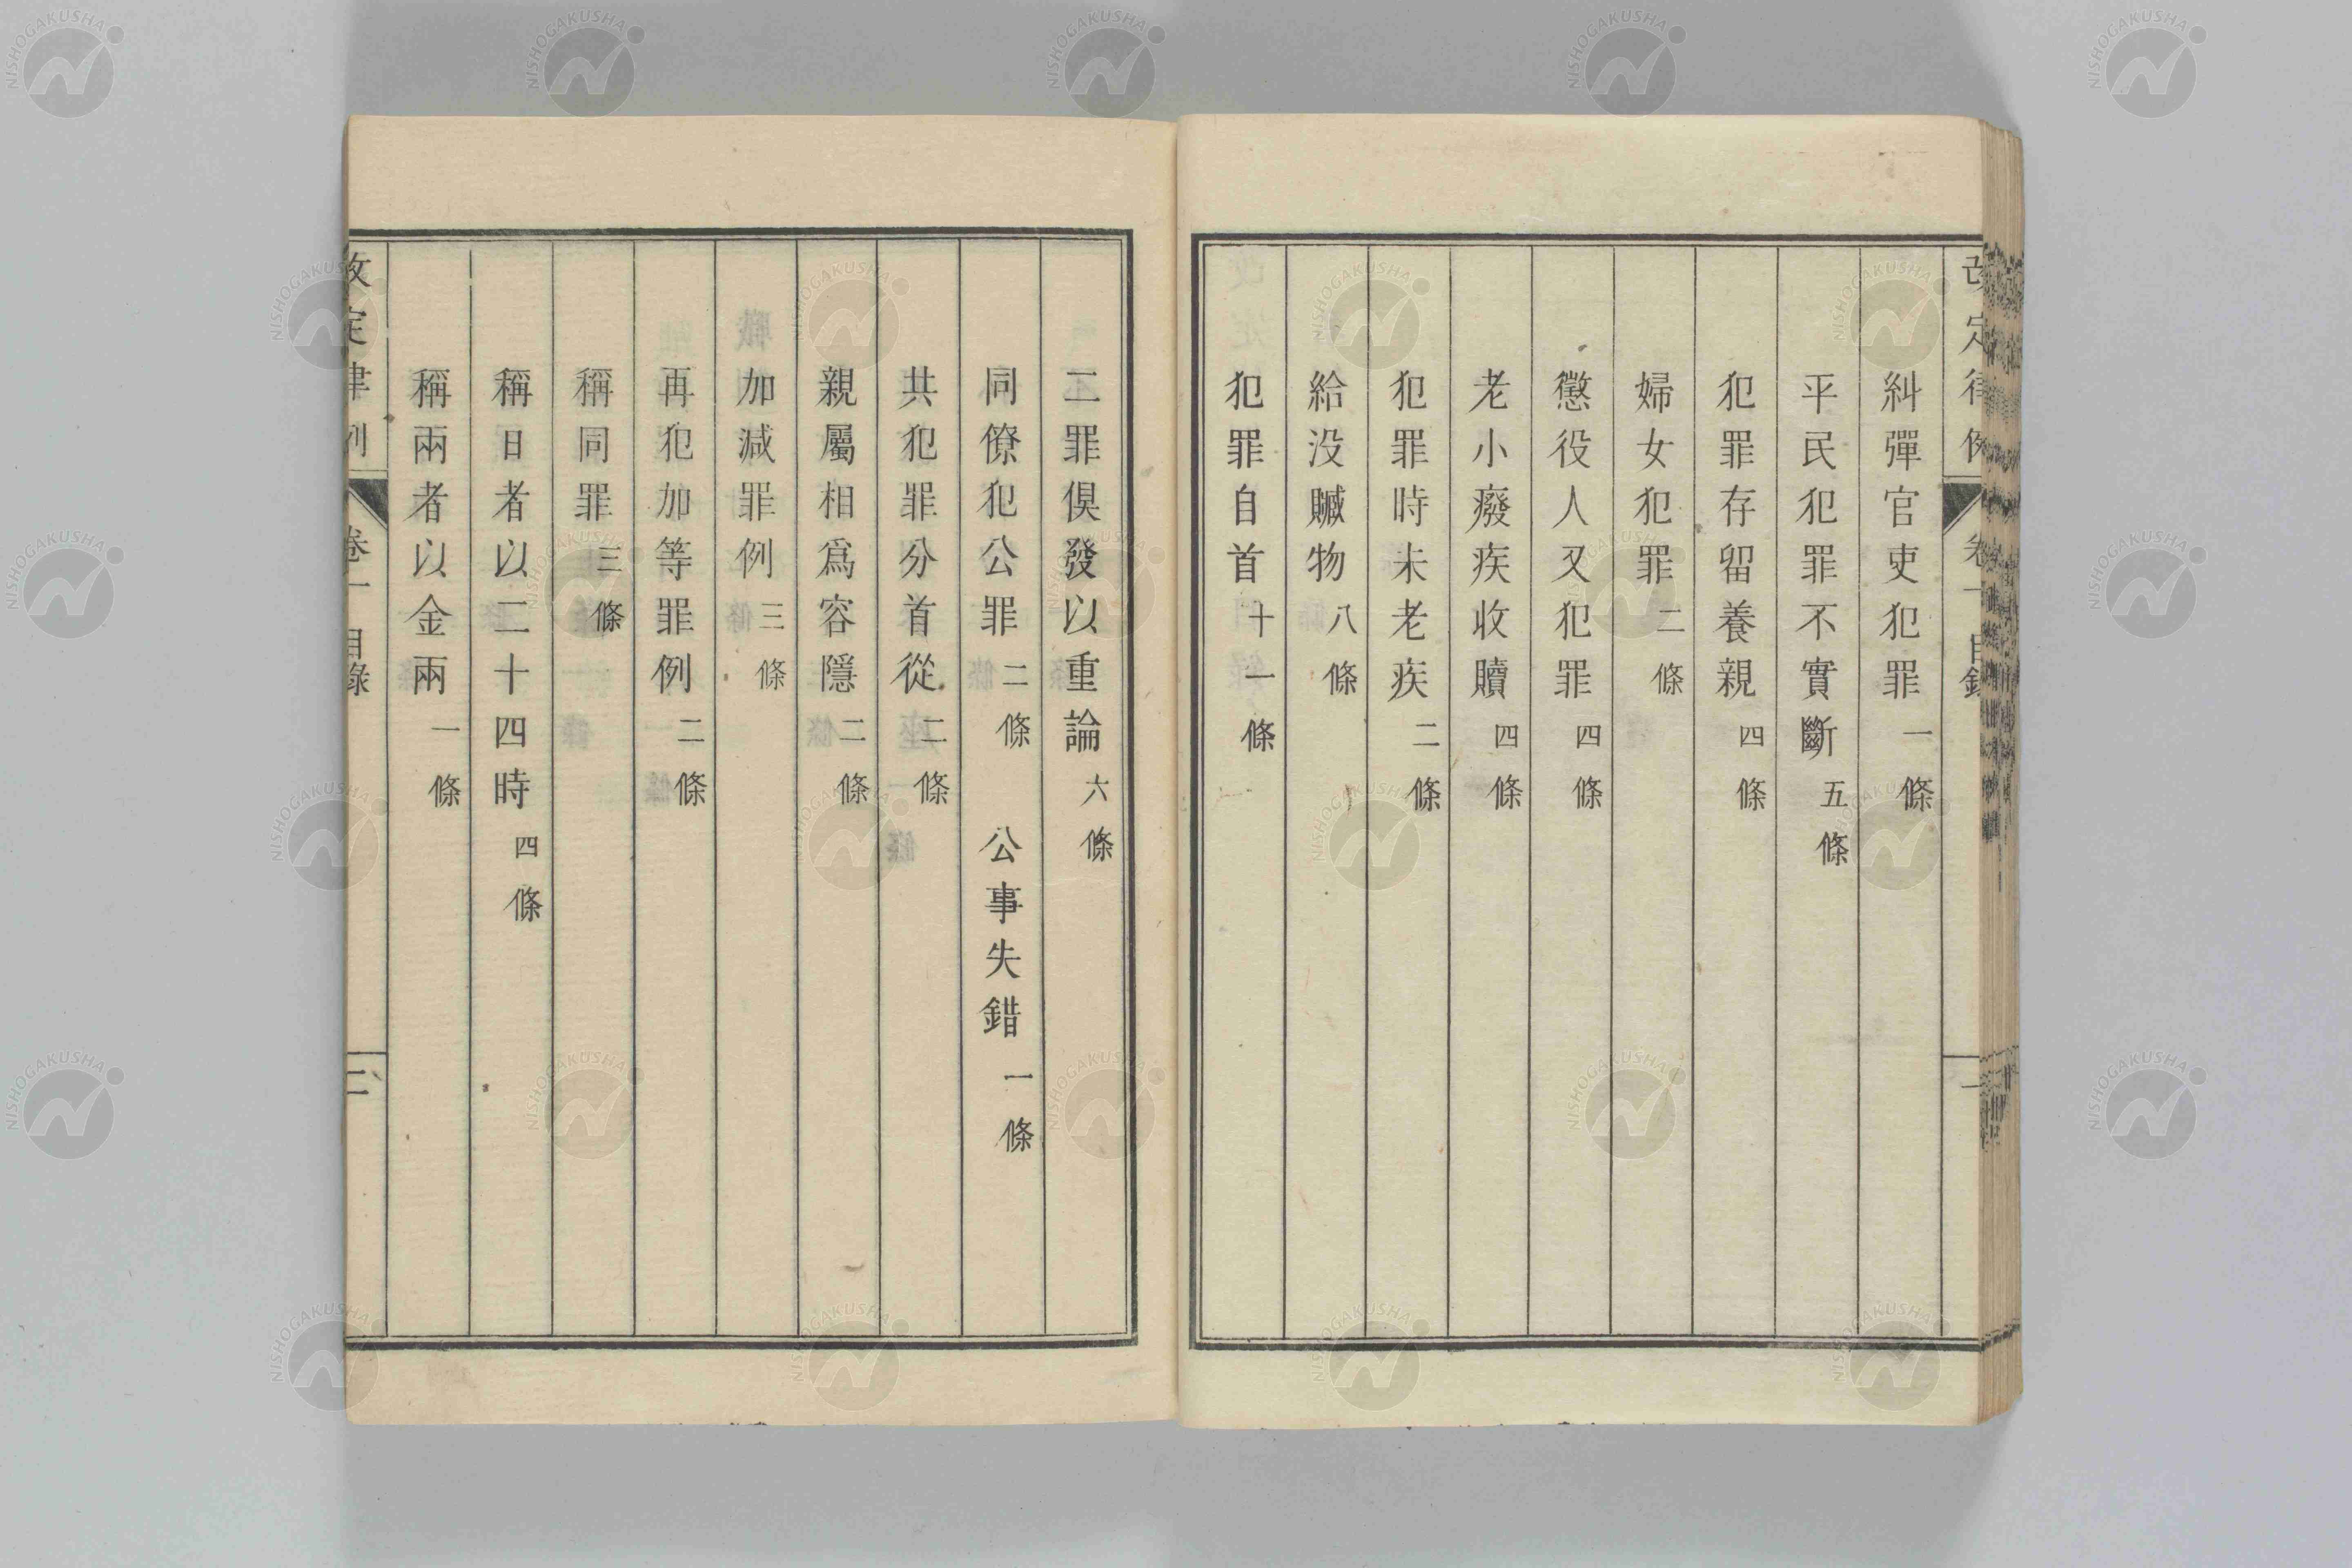 改定律例 卷一 目錄 一
糾彈官吏犯罪 一條
平民犯罪不實斷 五條
犯罪存留養親 四條
婦女犯罪 二條
懲役人又犯罪 四條
老小癈疾收贖 四條
犯罪時未老疾 二條
給没贓物 八條
犯罪自首 十一條
二罪俱發以重論 六條
同僚犯公罪 二條 公事失錯 一條
共犯罪分首從 二條
親屬相爲容隱 二條
加減罪例 三條
再犯加等罪例 二條
稱同罪 三條
稱日者以二十四時 四條
稱兩者以金兩 一條
改定律例 卷一 目錄 二
NISHOGAKUSHA